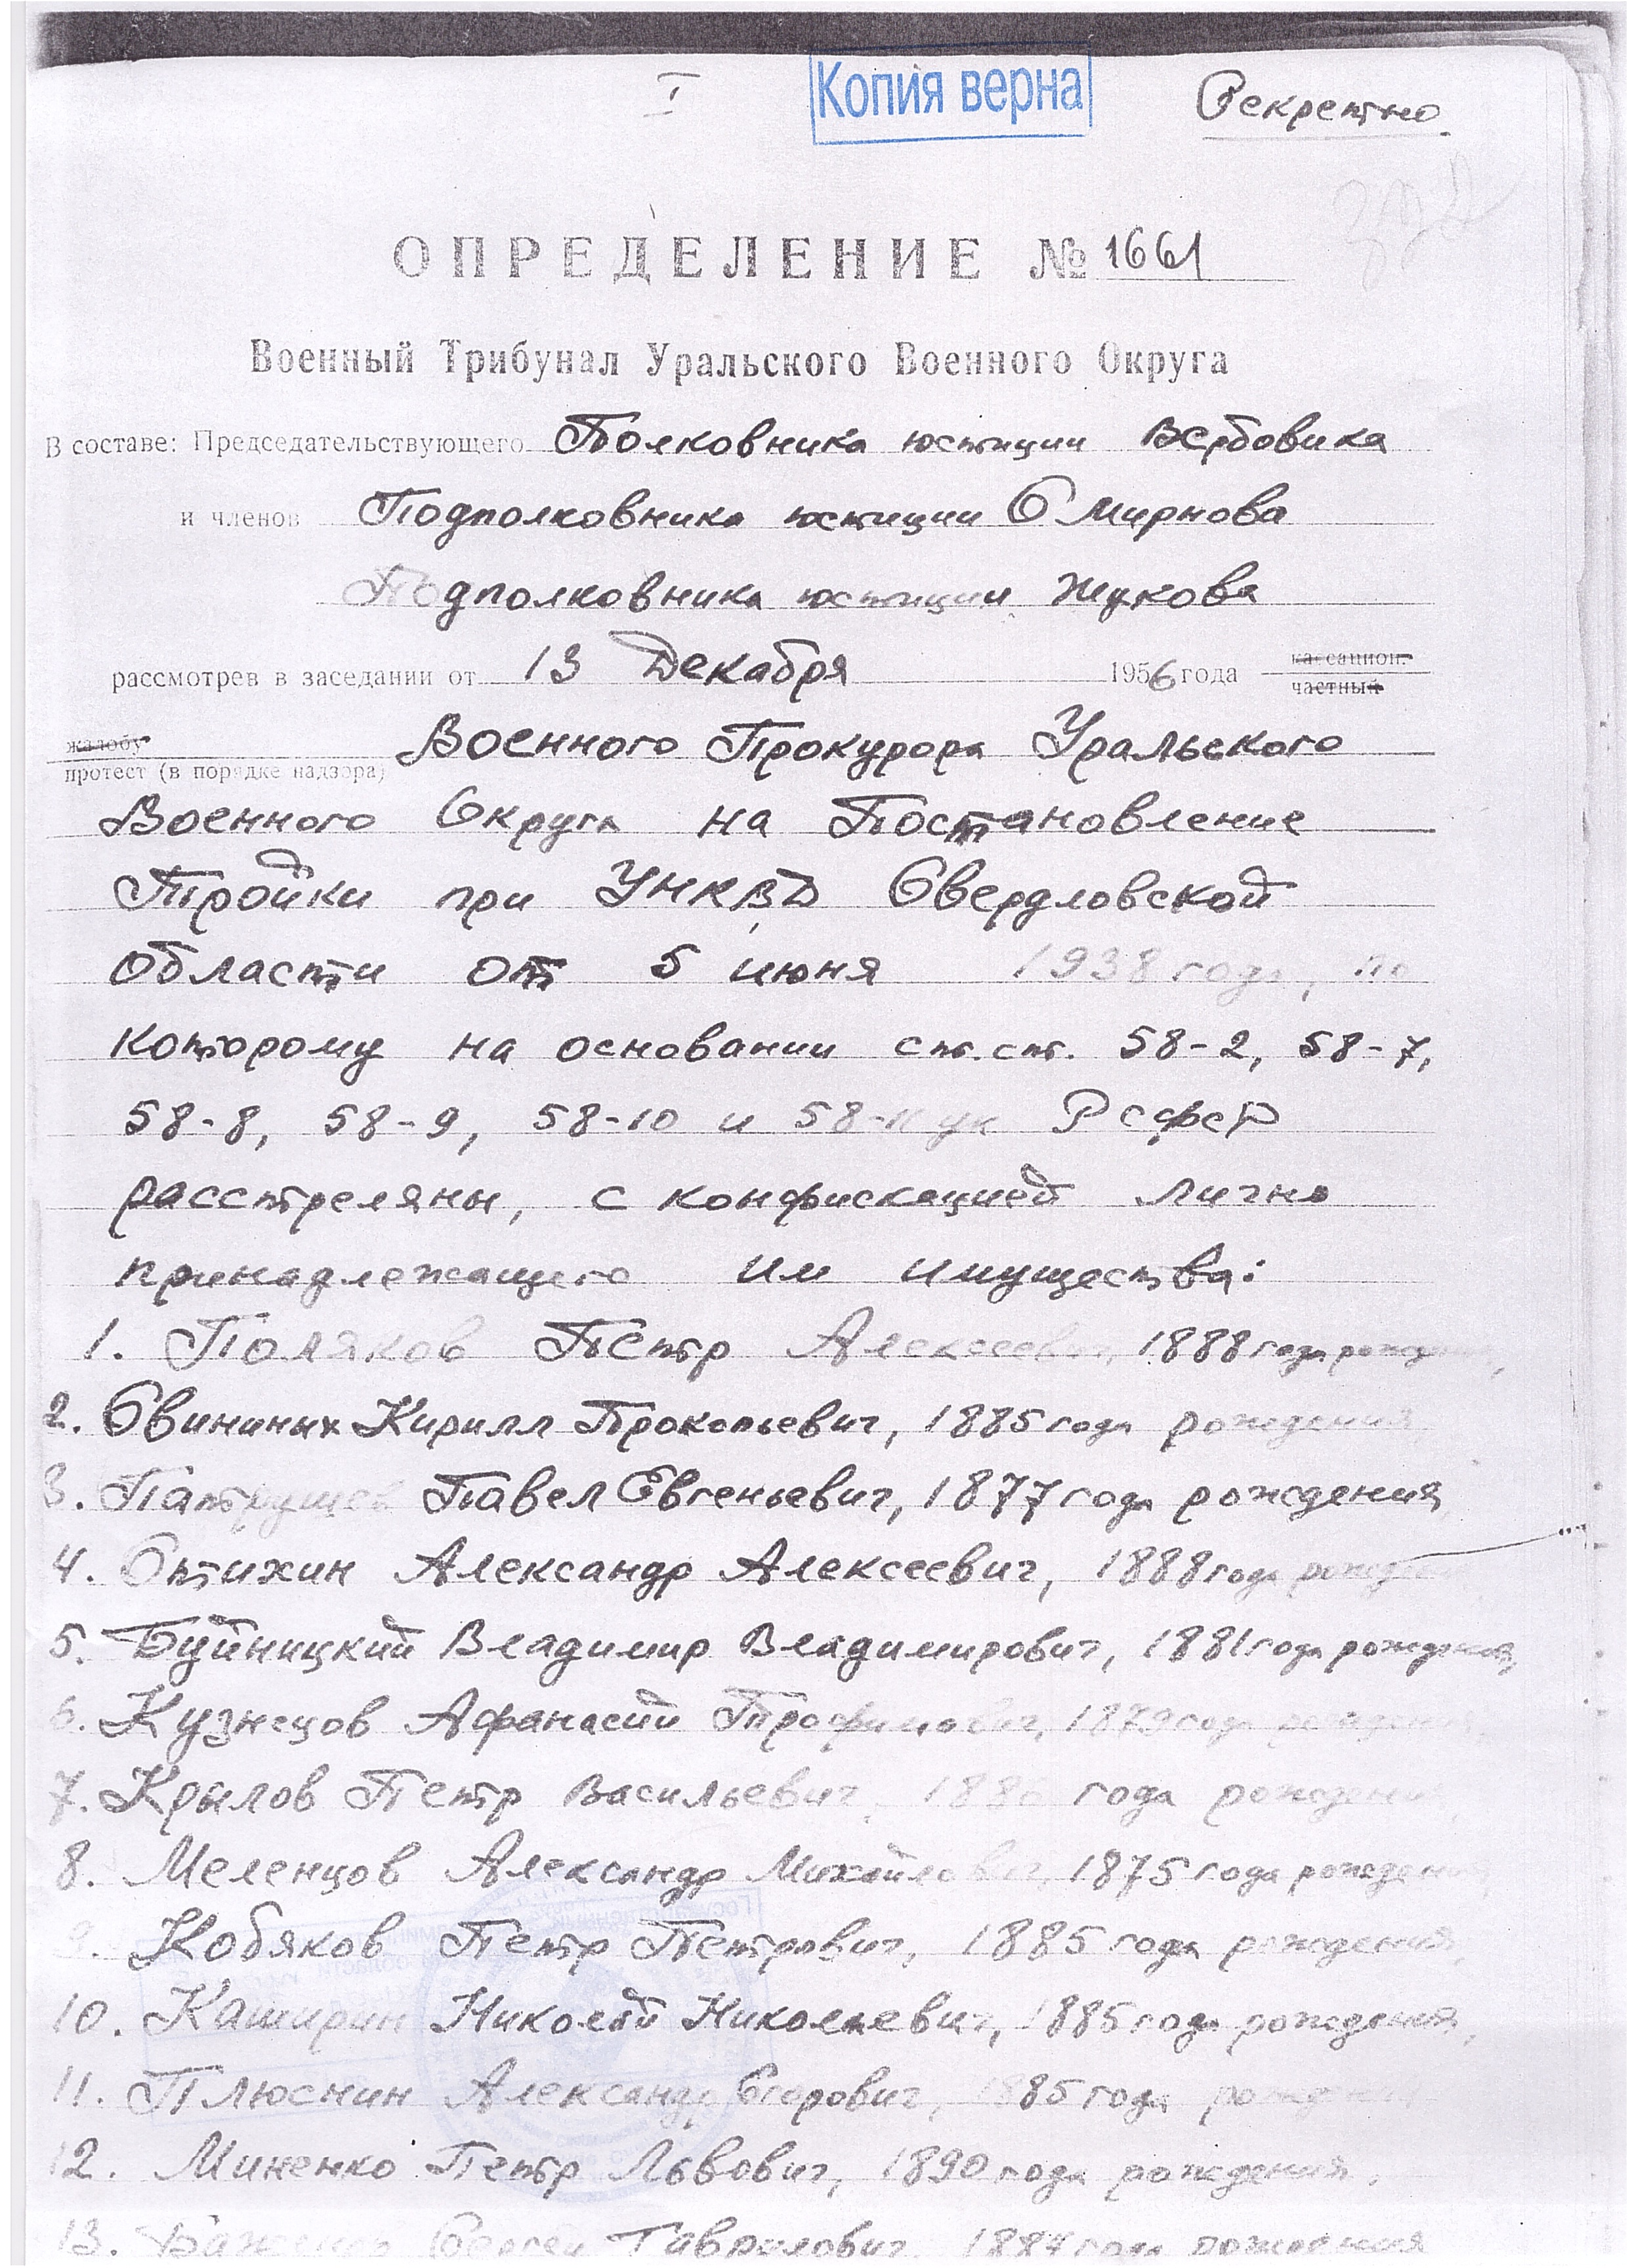 I
Копия верна
Секретно
ОПРЕДЕЛЕНИЕ № 1661
Военный Трибунал Уральского Военного Округа
В составе: Председательствующего Полковника юстиции Вербовика
и членов Подполковника юстиции Смирнова
Подполковника юстиции Жукова
рассмотрев в заседании от 13 Декабря 1956 года кассацион. частный
жалобу
протест (в порядке надзора) Военного Прокурора Уральского
Военного Округа на Постановление
Тройки при УНКВД Свердловской
области от 5 июня 1938 года, по
которому на основании ст.ст. 58-2, 58-7,
58-8, 58-9, 58-10 и 58-11 ук РСФСР
расстреляны, с конфискацией лично
принадлежащего им имущества:
1. Поляков Петр Алексеевич, 1888 года рождения,
2. Свининых Кирилл Прокопьевич, 1885 года рождения
3. Патрушев Павел Евгеньевич, 1877 года рождения,
4. Стихин Александр Алексеевич, 1888 года рождения
5. Буйницкий Владимир Владимирович, 1881 года рождения,
6. Кузнецов Афанасий Трофимович, 1879 года рождения,
7. Крылов Петр Васильевич, года рождения,
8. Меленцов Александр Михайлович, 1875 года рождения,
9. Кобяков Петр Петрович, 1885 года рождения,
10. Каширин Николай Николаевич, 1885 года рождения,
11. Плюснин Александр Егорович, 1885 года рождения
12. Миненко Петр Львович, 1890 года рождения,
13. Сергей Гаврилович, 1884 года рождения